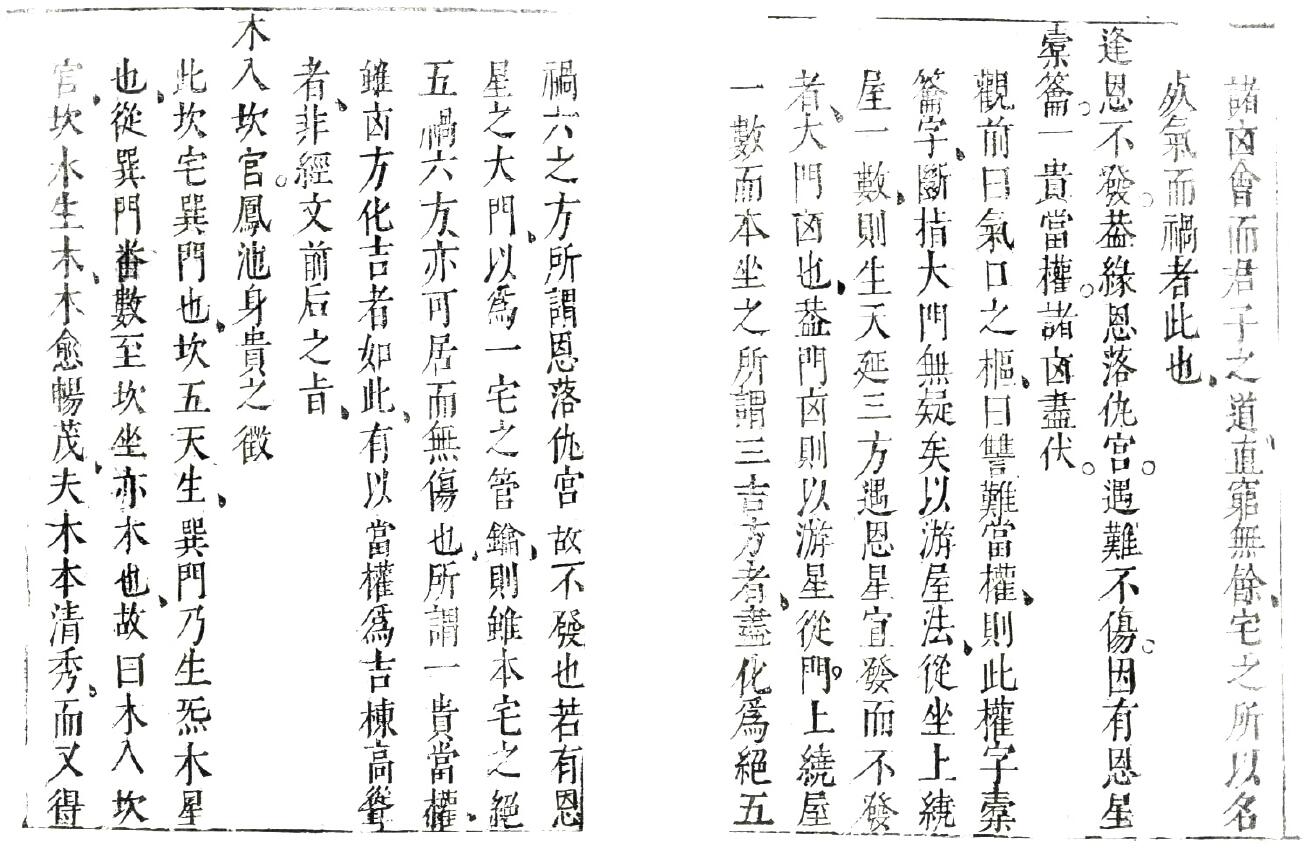 諸凶會而君子之道、直窮無餘、宅之所以名
死氣而禍者此也、
逢恩不發。葢緣恩落仇宮。遇難不傷。因有恩星
槖籥。一貴當權。諸凶盡伏。
觀前曰氣口之樞、曰讐難當權、則此權字槖
籥字、斷指大門無疑矣以游屋法、從坐上繞
屋一數、則生天延三方遇恩星宜發而不發
者、大門凶也、葢門凶則以游星從門。上繞屋
一數而本坐之所謂三吉方者、盡化爲絕五
禍六之方所謂恩落仇宮故不發也若有恩
星之大門、以爲一宅之管鑰、則雖本宅之絕
五禍六方亦可居而無傷也、所謂一貴當權、
雖凶方化吉者如此、有以當權爲吉棟高聳
者、非經文前后之旨、
木入坎宮。鳳池身貴之徵
此坎宅巽門也、坎五天生、巽門乃生炁木星
也、從巽門番數至坎坐亦木也、故曰木入坎
宮、坎水生木、木愈暢茂、夫木本清秀。而又得